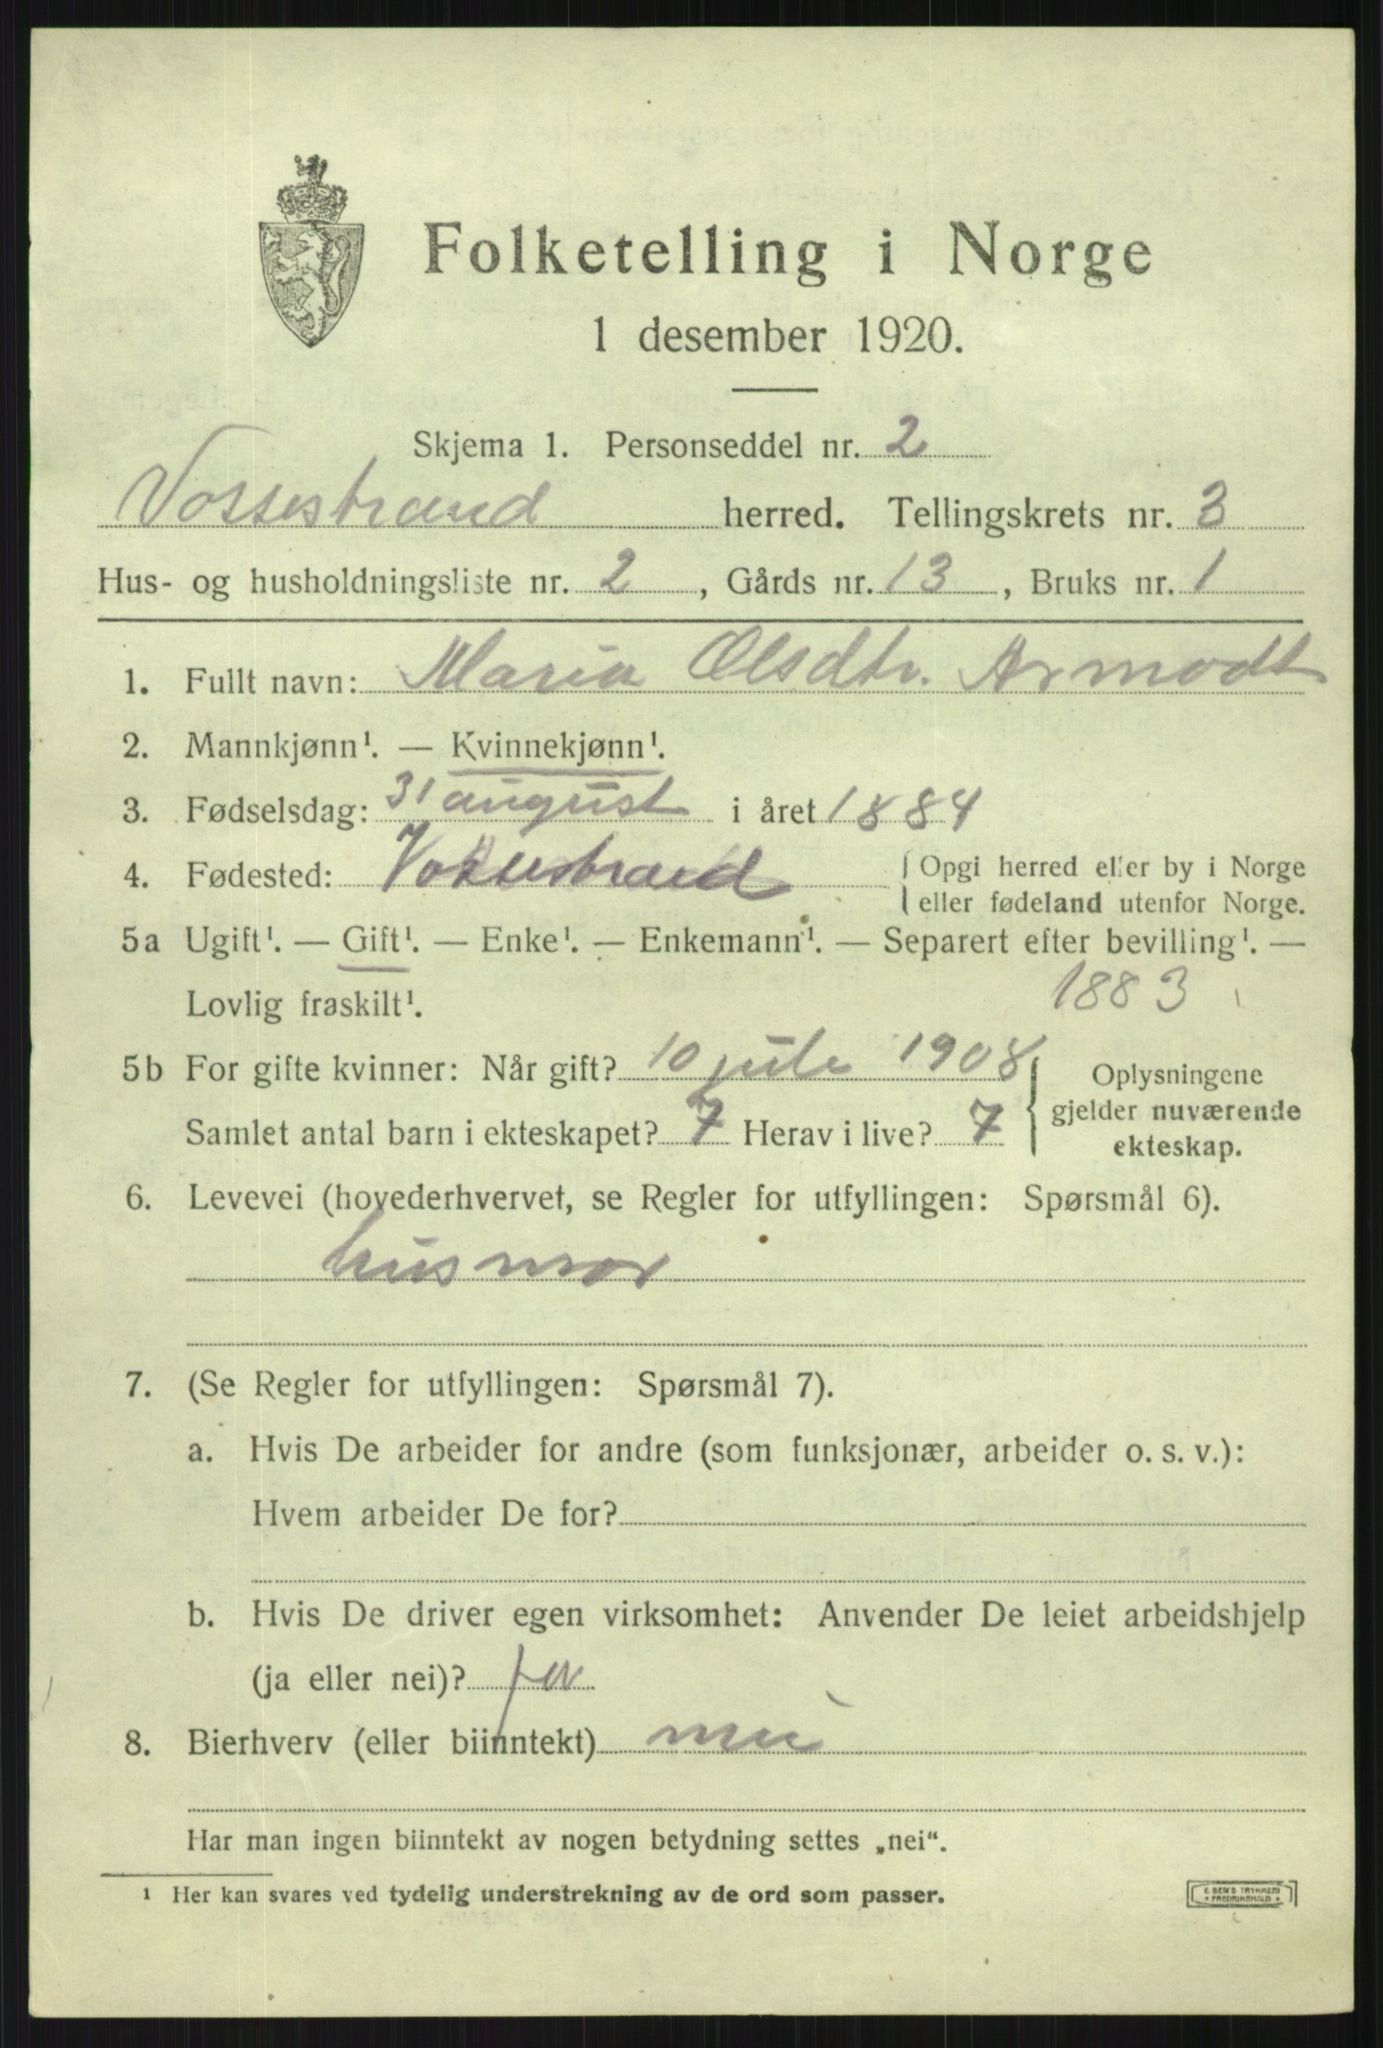 Folketelling i Norge
1 desember 1920.
Skjema 1. Personseddel nr. 2
Vossestrand herred. Tellingskrets nr. 3
Hus- og husholdningsliste nr. 2, Gårds nr. 13, Bruks nr. 1
1. Fullt navn: Maria Olsdtr. Armodt
2. Mannkjønn¹. — Kvinnekjønn¹.
3. Fødselsdag: 31 august i året 1884
4. Fødested: Vossestrand { Opgi herred eller by i Norge
eller fødeland utenfor Norge.
5a Ugift¹. — Gift¹. — Enke¹. — Enkemann¹. — Separert efter bevilling¹. —
Lovlig fraskilt¹. 1883
5b For gifte kvinner: Når gift? 10 juli 1908 { Oplysningene
gjelder nuværende
Samlet antal barn i ekteskapet? 7 Herav i live? 7
ekteskap.
6. Levevei (hovederhvervet, se Regler for utfyllingen: Spørsmål 6).
husmor
7. (Se Regler for utfyllingen: Spørsmål 7).
a. Hvis De arbeider for andre (som funksjonær, arbeider o. s. v.):
Hvem arbeider De for?
b. Hvis De driver egen virksomhet: Anvender De leiet arbeidshjelp
(ja eller nei)? ja
8. Bierhverv (eller biinntekt) nei
Har man ingen biinntekt av nogen betydning settes „nei“.
¹ Her kan svares ved tydelig understrekning av de ord som passer.
E. SEM'S TRYKKERI
FREDRIKSHALD